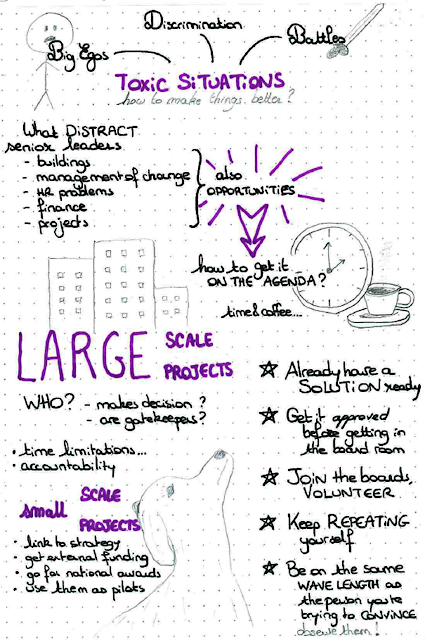 Discrimination
Big Egos
Battles
TOXIC SITUATIONS
how to make things better?
What DISTRACT
senior leaders
- buildings
- management of change
- HR problems
- finance
- projects
also
OPPORTUNITIES
how to get it
ON THE AGENDA?
time & coffee...
LARGE SCALE
PROJECTS
WHO? - makes decision?
- are gatekeepers?
• time limitations...
• accountability
small SCALE
PROJECTS
• link to strategy
• get external funding
• go for national awards
• use them as pilots
☆ Already have a
SOLUTION ready
☆ Get it approved
before getting in
the board room
☆ JOIN the boards,
VOLUNTEER
☆ Keep REPEATING
yourself
☆ Be on the same
WAVE LENGTH as
the person you're
trying to CONVINCE
observe them!